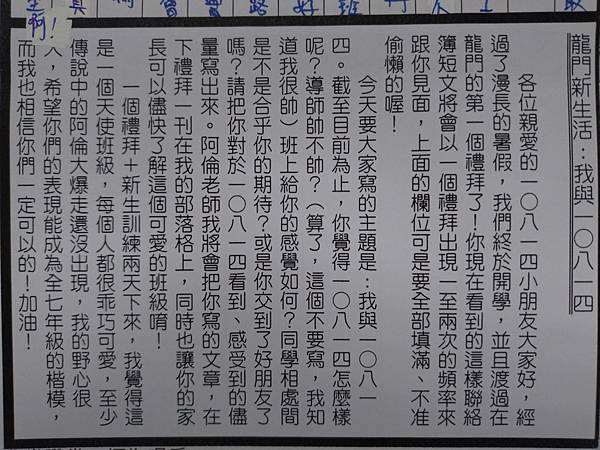 龍門新生活：我與一〇八一四
各位親愛的一〇八一四小朋友大家好，經
過了漫長的暑假，我們終於開學，並且渡過在
龍門的第一個禮拜了！你現在看到的這樣聯絡
簿短文將會以一個禮拜出現一至兩次的頻率來
跟你見面，上面的欄位可是要全部填滿、不准
偷懶的喔！
今天要大家寫的主題是：我與一〇八一
四。截至目前為止，你覺得一〇八一四怎麼樣
呢？導師帥不帥？（算了，這個不要寫，我知
道我很帥）班上給你的感覺如何？同學相處間
是不是合乎你的期待？或是你交到了好朋友了
嗎？請把你對於一〇八一四看到、感受到的儘
量寫出來。阿倫老師我將會把你寫的文章，在
下禮拜一刊在我的部落格上，同時也讓你的家
長可以儘快了解這個可愛的班級唷！
一個禮拜＋新生訓練兩天下來，我覺得這
是一個天使班級，每個人都很乖巧可愛，至少
傳說中的阿倫大爆走還沒出現，我的野心很
大，希望你們的表現能成為全七年級的楷模，
而我也相信你們一定可以的！加油！
啊！